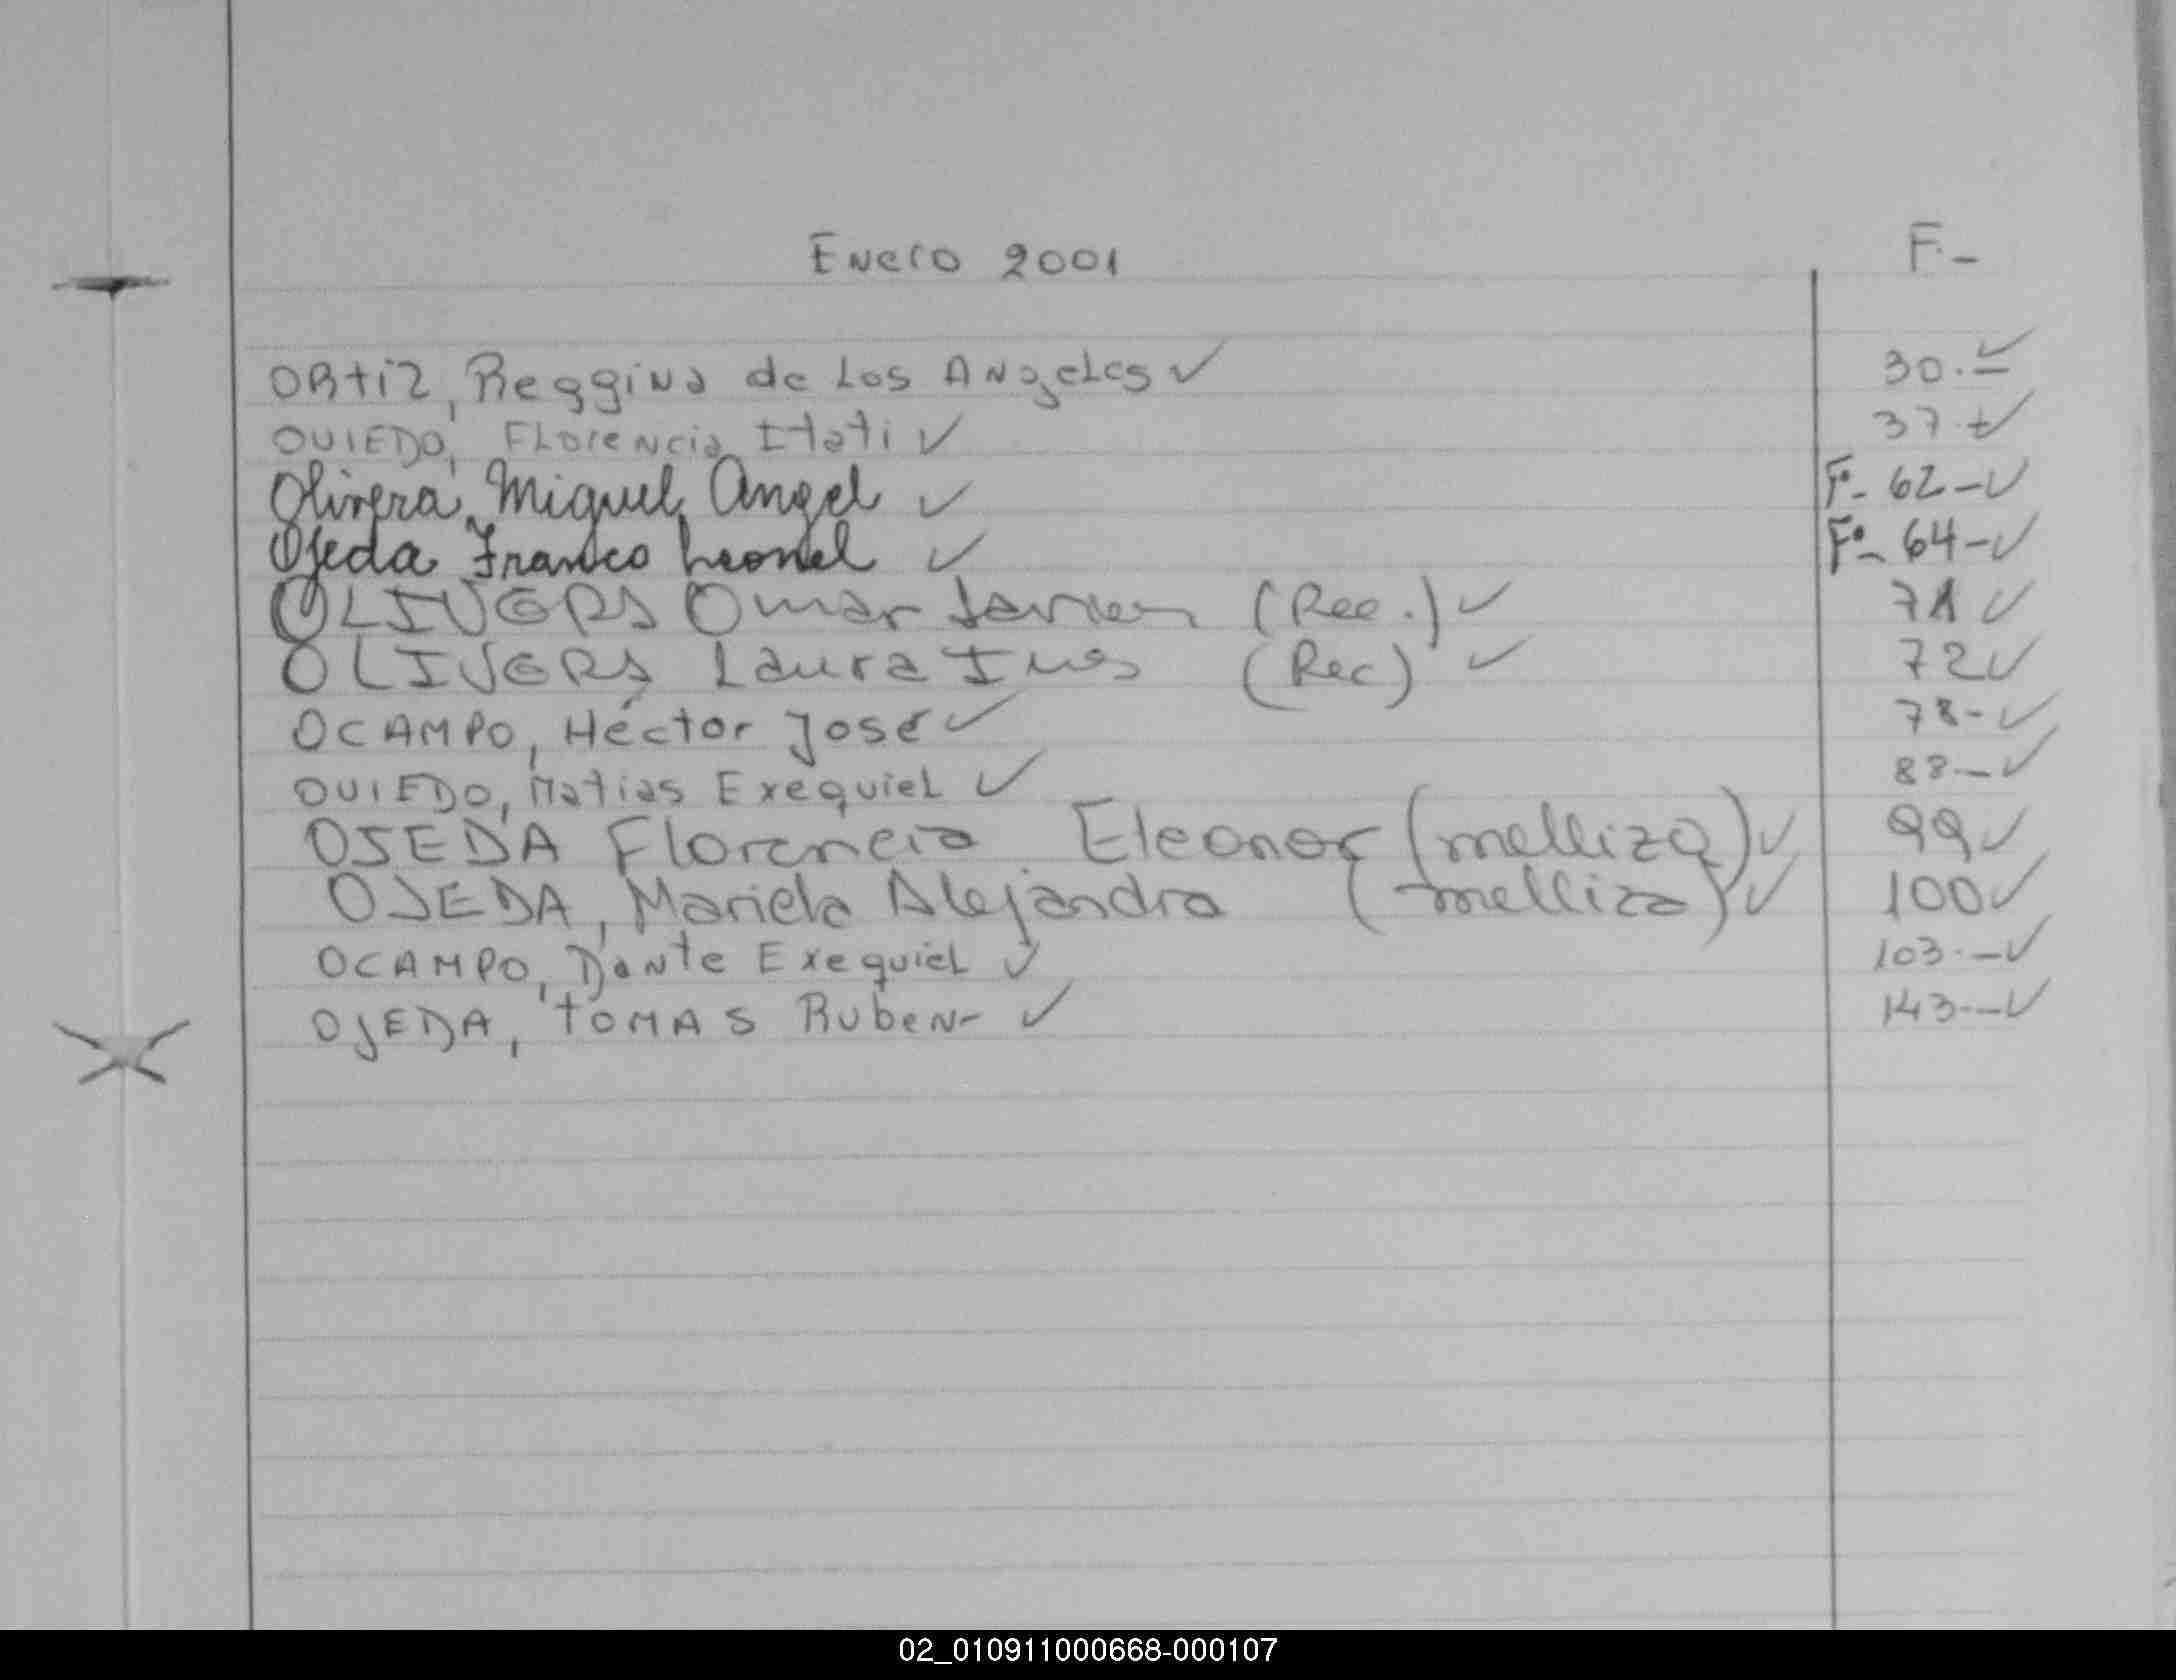 Enero 2001 F.-
ORtiz, Reggina de Los Angeles ✓ 30.- ✓
OVIEDO, Florencia Itati ✓ 37.- ✓
Olivera, Miguel Angel ✓ Fº- 62- ✓
Ojeda Franco Leonel ✓ Fº- 64- ✓
OLIVERA Omar Javier (Rec.) ✓ 71 ✓
OLIVERA, Laura Ines (Rec) ✓ 72 ✓
OCAMPO, Héctor José ✓ 78- ✓
OVIEDO, Matias Exequiel ✓ 88.- ✓
OJEDA Florencia Eleonor (melliza) ✓ 99 ✓
OJEDA, Mariela Alejandra (melliza) ✓ 100 ✓
OCAMPO, Dante Exequiel ✓ 103.- ✓
OJEDA, TOMAS Ruben- ✓ 143.- ✓
02_010911000668-000107